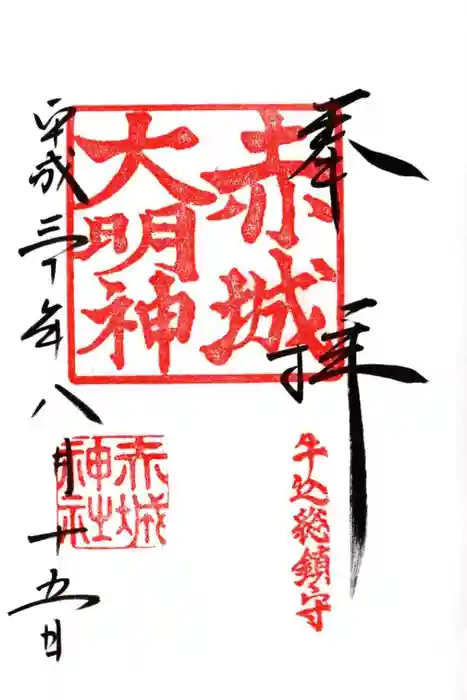 奉拝
赤城
大明神
牛込総鎮守
赤城
神社
平成三十年八月十五日